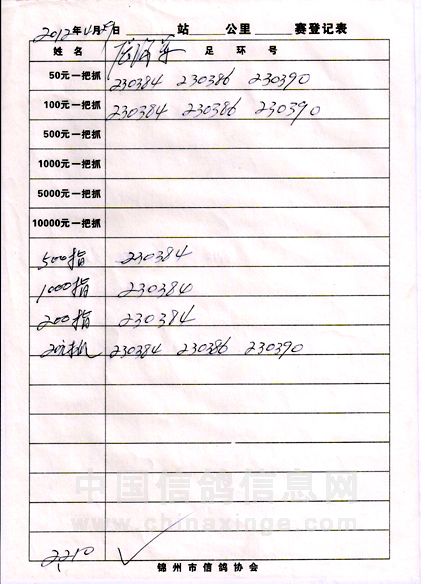 2012年4月 日 站 公里 赛登记表
姓名 足环号
50元一把抓 230384 230386 230390
100元一把抓 230384 230386 230390
500元一把抓
1000元一把抓
5000元一把抓
10000元一把抓
500指 230384
1000指 230384
200指 230384
230384 230386 230390
中国信鸽信息网
www.chinaxinge.com
2210 ✓
锦州市信鸽协会